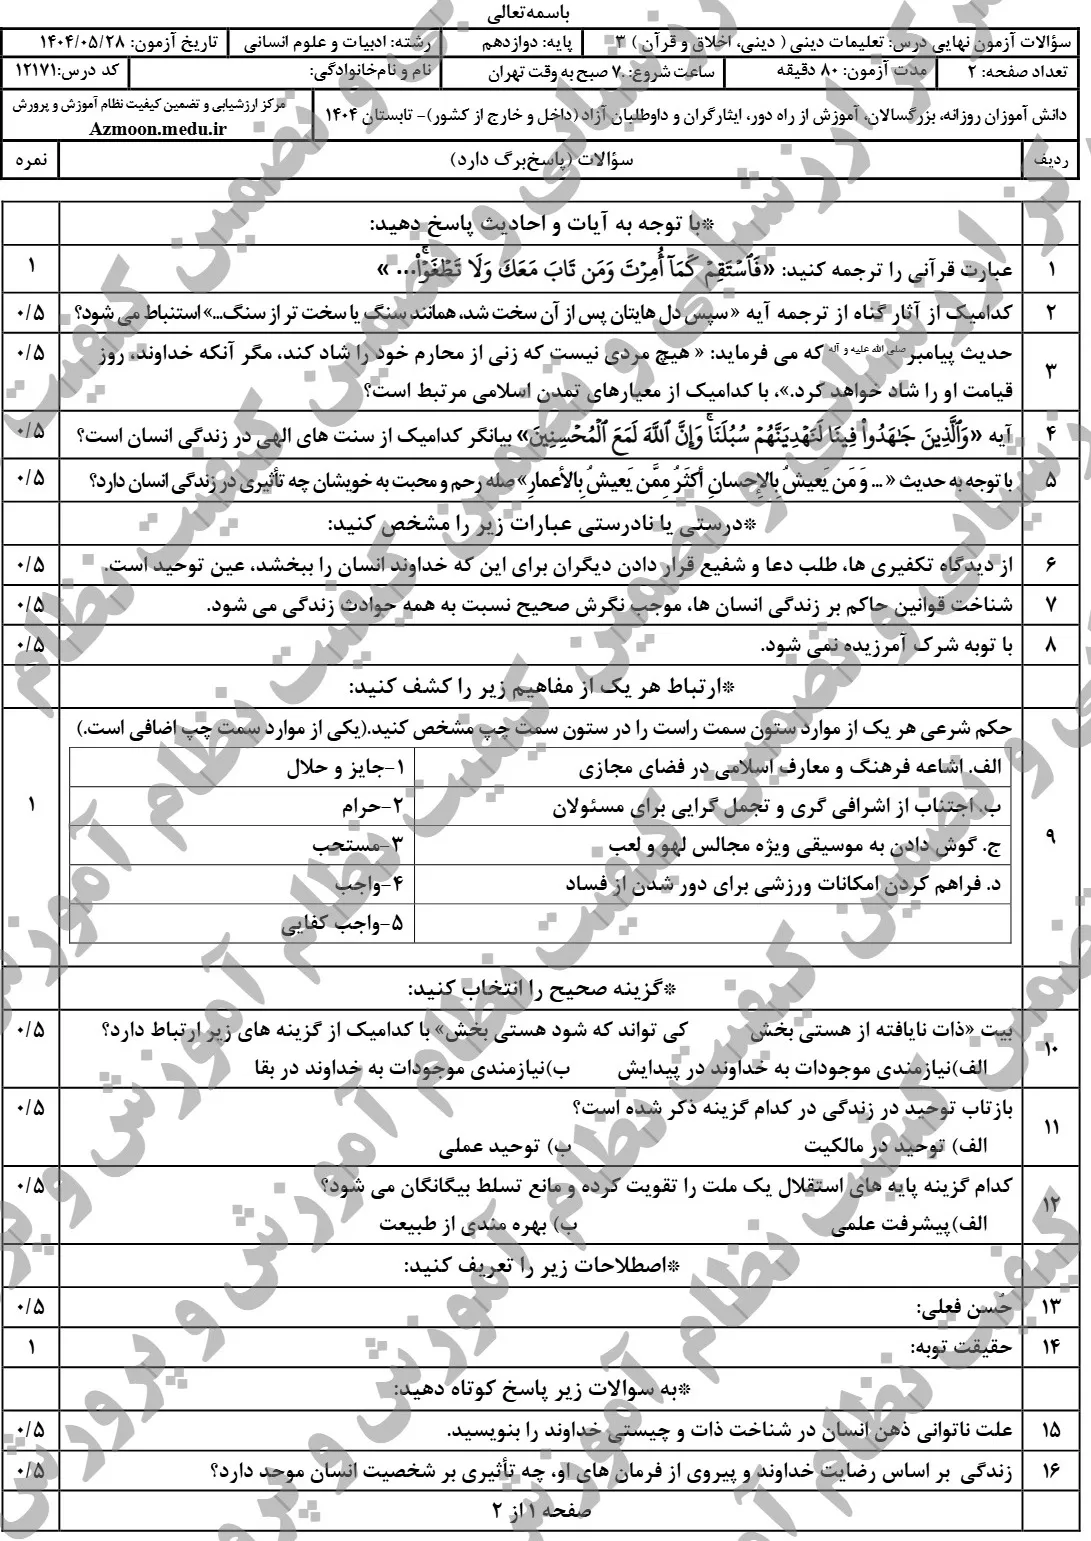 باسمه‌تعالی
سؤالات آزمون نهایی درس: تعلیمات دینی ( دینی، اخلاق و قرآن ) ۳ پایه: دوازدهم رشته: ادبیات و علوم انسانی تاریخ آزمون: ۱۴۰۴/۰۵/۲۸
تعداد صفحه: ۲ مدت آزمون: ۸۰ دقیقه ساعت شروع: ۷ صبح به وقت تهران نام و نام‌خانوادگی: کد درس: ۱۲۱۷۱
دانش آموزان روزانه، بزرگسالان، آموزش از راه دور، ایثارگران و داوطلبان آزاد (داخل و خارج از کشور)- تابستان ۱۴۰۴ مرکز ارزشیابی و تضمین کیفیت نظام آموزش و پرورش
Azmoon.medu.ir
ردیف سؤالات (پاسخ‌برگ دارد) نمره
*با توجه به آیات و احادیث پاسخ دهید:
۱ عبارت قرآنی را ترجمه کنید: «فَٱسْتَقِمْ كَمَآ أُمِرْتَ وَمَن تَابَ مَعَكَ وَلَا تَطْغَوْا۟ۚ... » ۱
۲ کدامیک از آثار گناه از ترجمه آیه «سپس دل هایتان پس از آن سخت شد، همانند سنگ یا سخت تر از سنگ...» استنباط می شود؟ ۰/۵
۳ حدیث پیامبر صلی الله علیه و آله که می فرماید: « هیچ مردی نیست که زنی از محارم خود را شاد کند، مگر آنکه خداوند، روز ۰/۵
قیامت او را شاد خواهد کرد.»، با کدامیک از معیارهای تمدن اسلامی مرتبط است؟
۴ آیه «وَٱلَّذِينَ جَٰهَدُوا۟ فِينَا لَنَهْدِيَنَّهُمْ سُبُلَنَاۚ وَإِنَّ ٱللَّهَ لَمَعَ ٱلْمُحْسِنِينَ» بیانگر کدامیک از سنت های الهی در زندگی انسان است؟ ۰/۵
۵ با توجه به حدیث « ... وَ مَن یَعیشُ بِالإحسانِ أکثَرُ مِمَّن یَعیشُ بِالأعمارِ» صله رحم و محبت به خویشان چه تأثیری در زندگی انسان دارد؟ ۰/۵
*درستی یا نادرستی عبارات زیر را مشخص کنید:
۶ از دیدگاه تکفیری ها، طلب دعا و شفیع قرار دادن دیگران برای این که خداوند انسان را ببخشد، عین توحید است. ۰/۵
۷ شناخت قوانین حاکم بر زندگی انسان ها، موجب نگرش صحیح نسبت به همه حوادث زندگی می شود. ۰/۵
۸ با توبه شرک آمرزیده نمی شود. ۰/۵
*ارتباط هر یک از مفاهیم زیر را کشف کنید:
۹ حکم شرعی هر یک از موارد ستون سمت راست را در ستون سمت چپ مشخص کنید.(یکی از موارد سمت چپ اضافی است.) ۱
الف. اشاعه فرهنگ و معارف اسلامی در فضای مجازی ۱-جایز و حلال
ب. اجتناب از اشرافی گری و تجمل گرایی برای مسئولان ۲-حرام
ج. گوش دادن به موسیقی ویژه مجالس لهو و لعب ۳-مستحب
د. فراهم کردن امکانات ورزشی برای دور شدن از فساد ۴-واجب
۵-واجب کفایی
*گزینه صحیح را انتخاب کنید:
۱۰ بیت «ذات نایافته از هستی بخش کی تواند که شود هستی بخش» با کدامیک از گزینه های زیر ارتباط دارد؟ ۰/۵
الف)نیازمندی موجودات به خداوند در پیدایش ب)نیازمندی موجودات به خداوند در بقا
۱۱ بازتاب توحید در زندگی در کدام گزینه ذکر شده است؟ ۰/۵
الف) توحید در مالکیت ب) توحید عملی
۱۲ کدام گزینه پایه های استقلال یک ملت را تقویت کرده و مانع تسلط بیگانگان می شود؟ ۰/۵
الف)پیشرفت علمی ب) بهره مندی از طبیعت
*اصطلاحات زیر را تعریف کنید:
۱۳ حُسن فعلی: ۰/۵
۱۴ حقیقت توبه: ۱
*به سوالات زیر پاسخ کوتاه دهید:
۱۵ علت ناتوانی ذهن انسان در شناخت ذات و چیستی خداوند را بنویسید. ۰/۵
۱۶ زندگی بر اساس رضایت خداوند و پیروی از فرمان های او، چه تأثیری بر شخصیت انسان موحد دارد؟ ۰/۵
صفحه ۱ از ۲